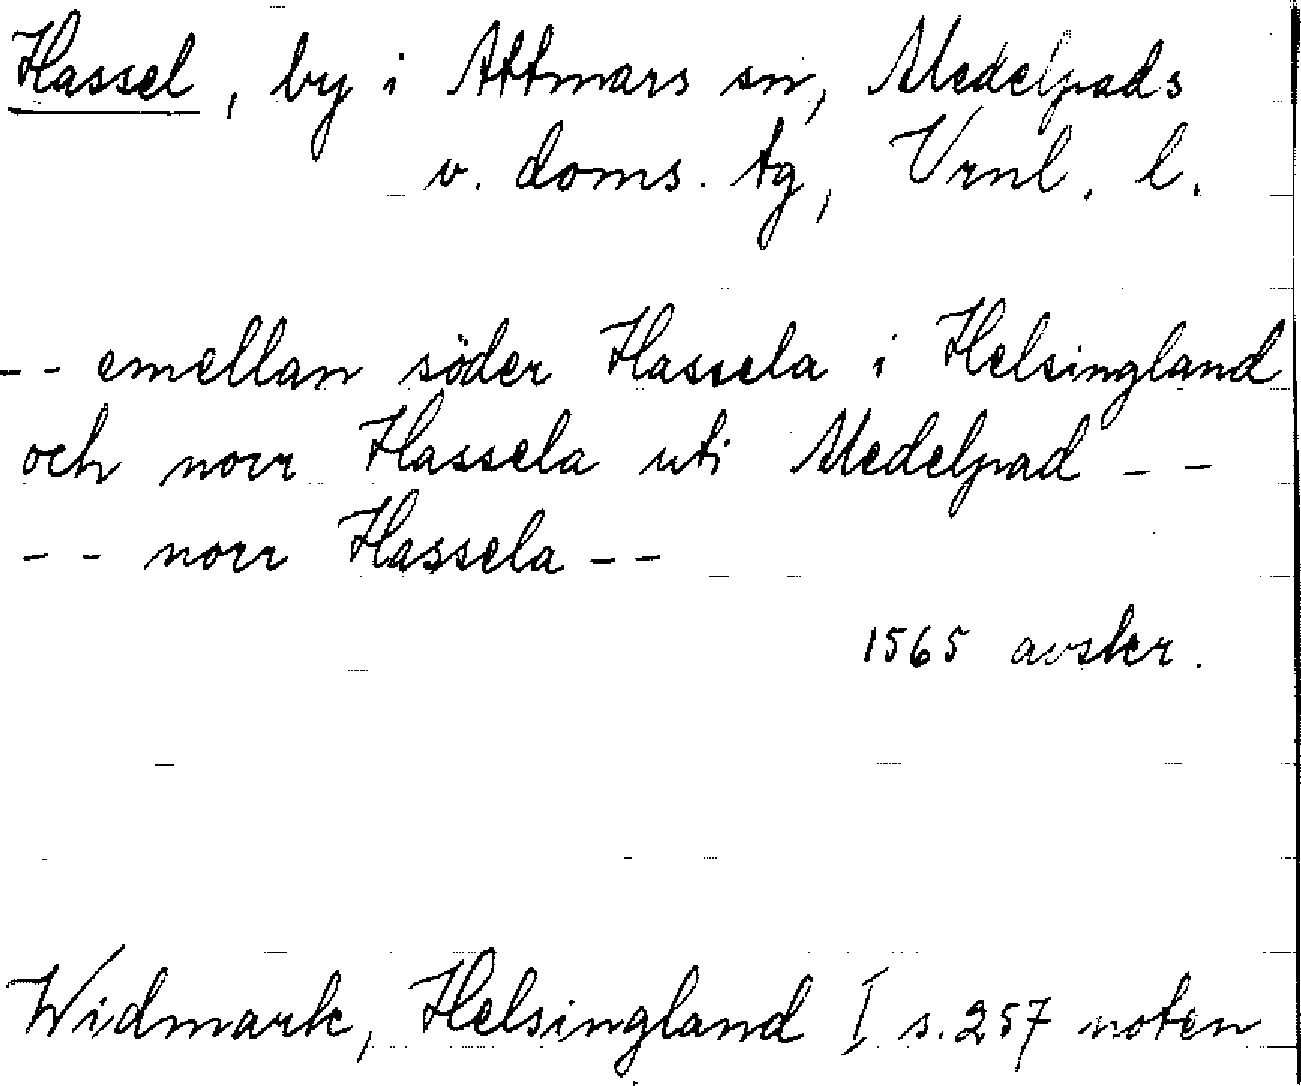 Hassel, by i Attmars sn, Medelpads
v. doms. tg, Vrnl. l.
-- emellan söder Hassela i Helsingland
och norr Hassela uti Medelpad --
-- norr Hassela --
1565 avskr.
Widmark, Helsingland I s. 257 noten